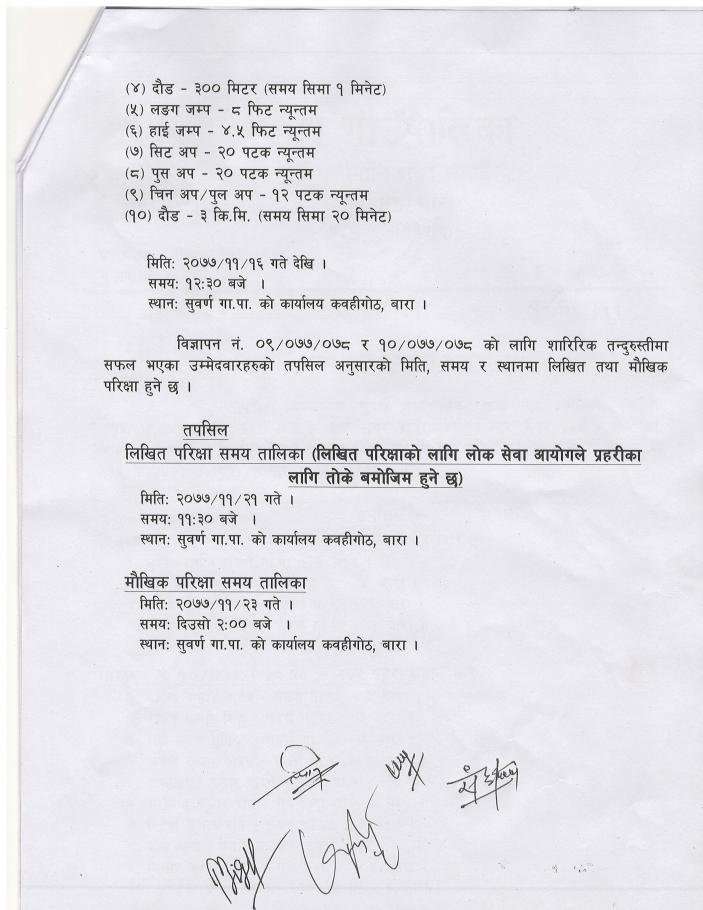 (४) दौड - ३०० मिटर (समय सिमा १ मिनेट)
(५) लङग जम्प - ८ फिट न्यून्तम
(६) हाई जम्प - ४.५ फिट न्यून्तम
(७) सिट अप - २० पटक न्यून्तम
(८) पुस अप - २० पटक न्यून्तम
(९) चिन अप/पुल अप - १२ पटक न्यून्तम
(१०) दौड - ३ कि.मि. (समय सिमा २० मिनेट)
मिति: २०७७/११/१६ गते देखि ।
समय: १२:३० बजे ।
स्थान: सुवर्ण गा.पा. को कार्यालय कवहीगोठ, बारा ।
विज्ञापन नं. ०९/०७७/०७८ र १०/०७७/०७८ को लागि शारिरिक तन्दुरुस्तीमा
सफल भएका उम्मेदवारहरुको तपसिल अनुसारको मिति, समय र स्थानमा लिखित तथा मौखिक
परिक्षा हुने छ ।
तपसिल
लिखित परिक्षा समय तालिका (लिखित परिक्षाको लागि लोक सेवा आयोगले प्रहरीका
लागि तोके बमोजिम हुने छ)
मिति: २०७७/११/२१ गते ।
समय: ११:३० बजे ।
स्थान: सुवर्ण गा.पा. को कार्यालय कवहीगोठ, बारा ।
मौखिक परिक्षा समय तालिका
मिति: २०७७/११/२३ गते ।
समय: दिउसो २:०० बजे ।
स्थान: सुवर्ण गा.पा. को कार्यालय कवहीगोठ, बारा ।